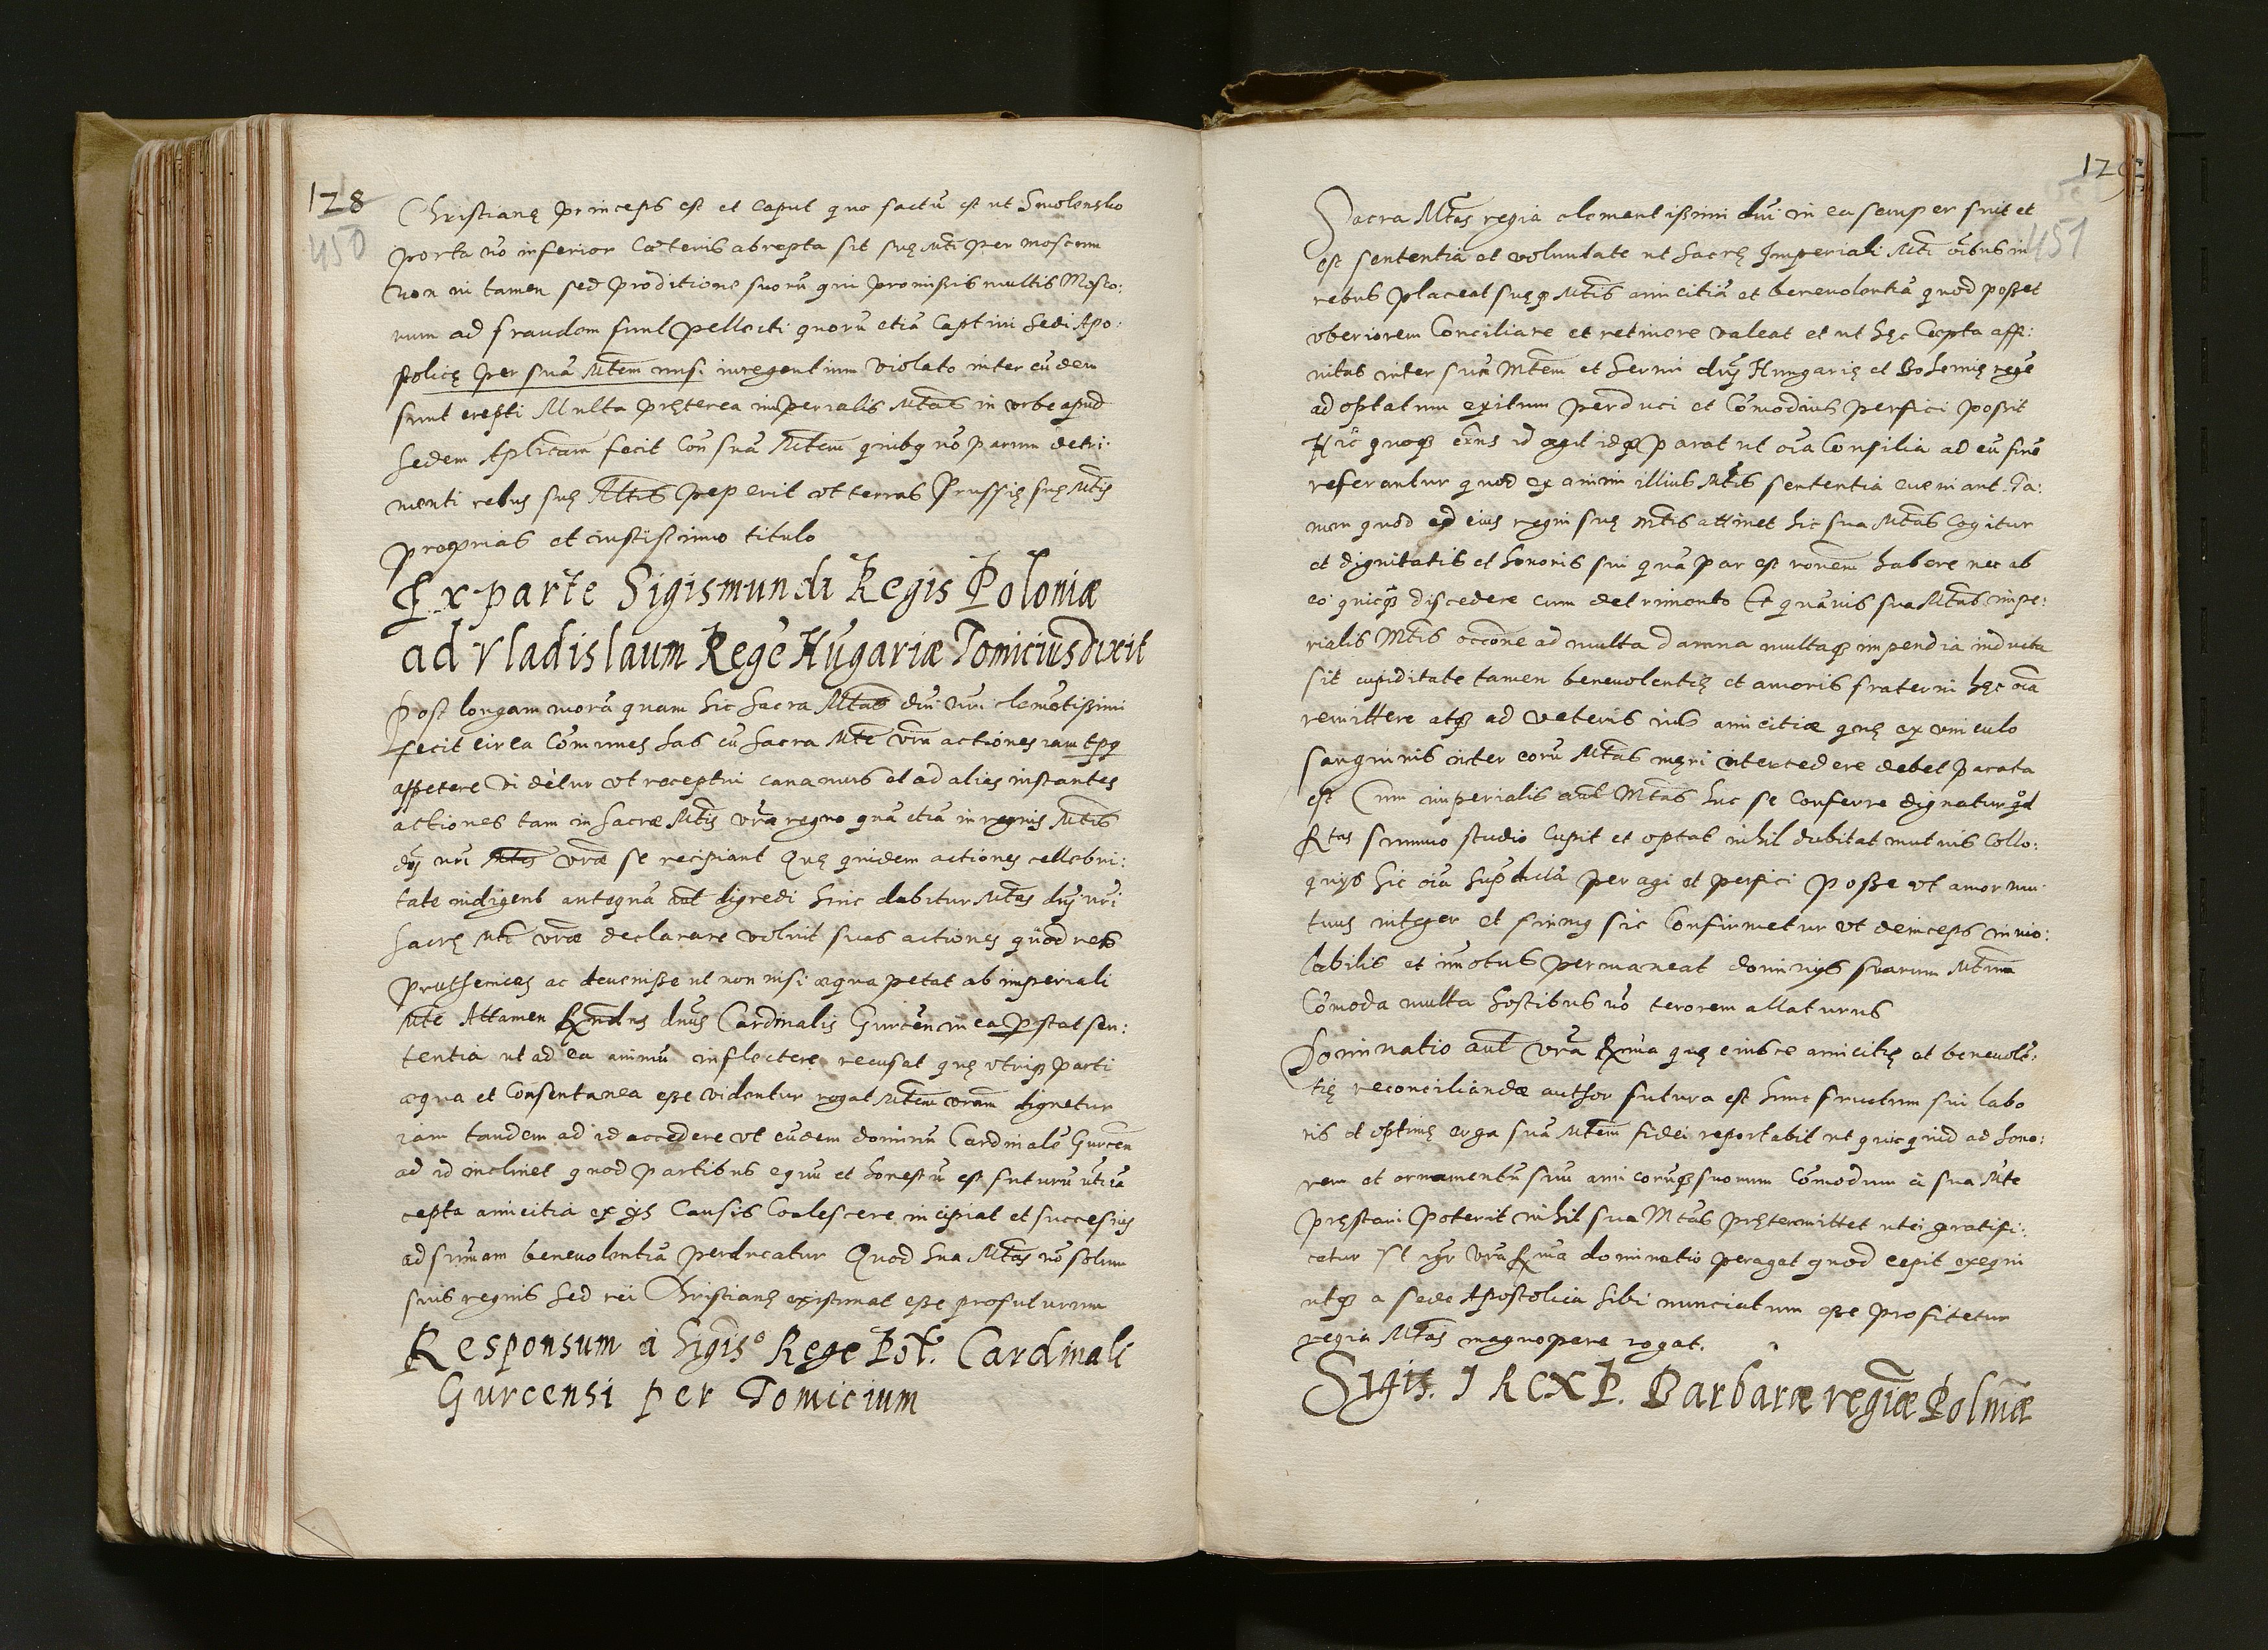 128
450
Christianę princeps est et caput quo factũ est ut Smolensko
porta nõ inferior Cæteris abrepta sit suę Mti per moscum
non vi tamen sed proditione suorũ qui promißis multis Mosco:
rum ad fraudem sunt pellecti quorũ etiã Captivi Sedi Apo:
stolicę per suã Mtem missi
sunt erepti Multa pręterea imperialis Mtas in urbe apud
Sedem Aplicam fecit Con suã Mtem quibq nõ parum detri:
menti rebus suę Mtis peperit ut terras Prussię suę Mtis
proprias et iustissimo titulo
Ex parte Sigismundi Regis Poloniæ
ad Vladislaum Regẽ Hũgariæ Tomicius dixit
Post longam morã quam hic Sacra Mtas dni nri clemẽtißimi
fecit circa Cõmunes has cũ Sacra Mte vra actiones iam tpq
appetere vidẽtur ut receptui canamus et ad alias instantes
actiones tam in Sacræ Mtis vræ regno quã etiã in regnis Mtis
dnj nri Mtis vræ se recipiant Quę quidem actiones cellebri:
tate indigent antequã aut digredi hinc dabitur Mtas dnj nri
Sacrę Mti vræ declarare voluit suas actiones quod res
Pruthenicas ac devenisse ut non nisi æqua petat ab imperiali
Mte Attamen Rndus dnus Cardinalis Gurcen in ea pstat sen:
tentia ut ad ea animũ inflectere recusat quę utriq parti
æqua et Consentanea eße videntur rogat Mtem vram dignetur
iam tandem ad id accedere ut eũdem dominũ Cardinalẽ Gurcen
ad id inclinet quod partibus equũ et honestũ est futurũ
cepta amicitia ex ijs Causis Coalescere incipiat et succesius
ad summam benevolentiã perducatur Quod Sua Mtas nõ solum
suis regnis Sed rei Christianę existimat eße profuturum
Responsum a Sigiso Rege Pol. Cardinali
Gurcensi per Tomicium
129
451
Sacra Mtas regia clementißimi dni in ea semper fuit et
est sententia et voluntate ut Sacrę Imperiali Mti õibus in
rebus placeat suęq Mtis amicitiã et benevolentiã quod poßet
uberiorem Conciliare et retinere valeat et ut hęc Cœpta affi:
nitas inter suã Mtem et Sermi dnj Hungarię et Bohemię regẽ
ad optatum exitum perduci et Cõmodius perfici poßit
Hic quoq id agit idq parat ut oia Consilia ad eũ finẽ
referantur quod ex animi illius Mtis sententia eveniant Ta:
men quod ad eius regni suę Mtis attinet hic sua Mtas Cogitur
et dignitatis et honoris sui quã par est ronem habere nec ab
eo quicq discedere cum detrimento Et quãvis sua Mtas impe:
rialis Mtis occone ad multa damna multaq impendia inducta
sit cupiditate tamen benevolentię et amoris fraterni hęc oia
remittere atq ad veteris ius amicitiæ quę ex vinculo
sanguinis inter eorũ Mtas mqri intercedere debet parata
est Cum imperialis aut Mtas huc se Conferre dignatur qd
Rtas summo studio Cupit et optat nihil dubitat mutuis Collo:
quijs hic oia supdicta peragi et perfici poße ut amor mu:
tuus integer et firmq sic Confirmetur ut deinceps invio:
labilis et imotus permaneat dominijs suarum Mtum
Cõmoda multa hostibus nõ terorem allaturus
Dominatio aut vra Rma quę eiusce amicitię et benevolẽ:
tię reconciliandæ author futura est hunc fructum sui labo
ris et optimę erga suã Mtem fidei reportabit ut quicquid ad hono:
rem et ornamentũ suũ amicorũq suorum Cõmodum a sua Mte
pręstari poterit nihil sua Mtas prętermittet ut ei gratifi:
cetur Ut igr vra Rma dominatio peragat quod cepit exequi
utq a sede Apostolica Sibi nunciatum eße profitetur
regia Mtas magnopere rogat.
Sigis. I REX P. Barbaræ regiæ Polniæ